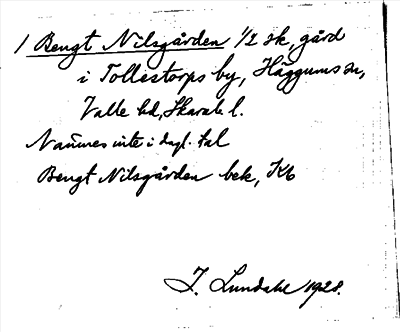 / Bengt Nilsgården 1/2 sk, gård
i Tollestorps by, Häggums sn,
Valle hd, Skarab. l.
Nämnes inte i dagl. tal
Bengt Nilsgården bek, Kb
I. Lundahl 1928.